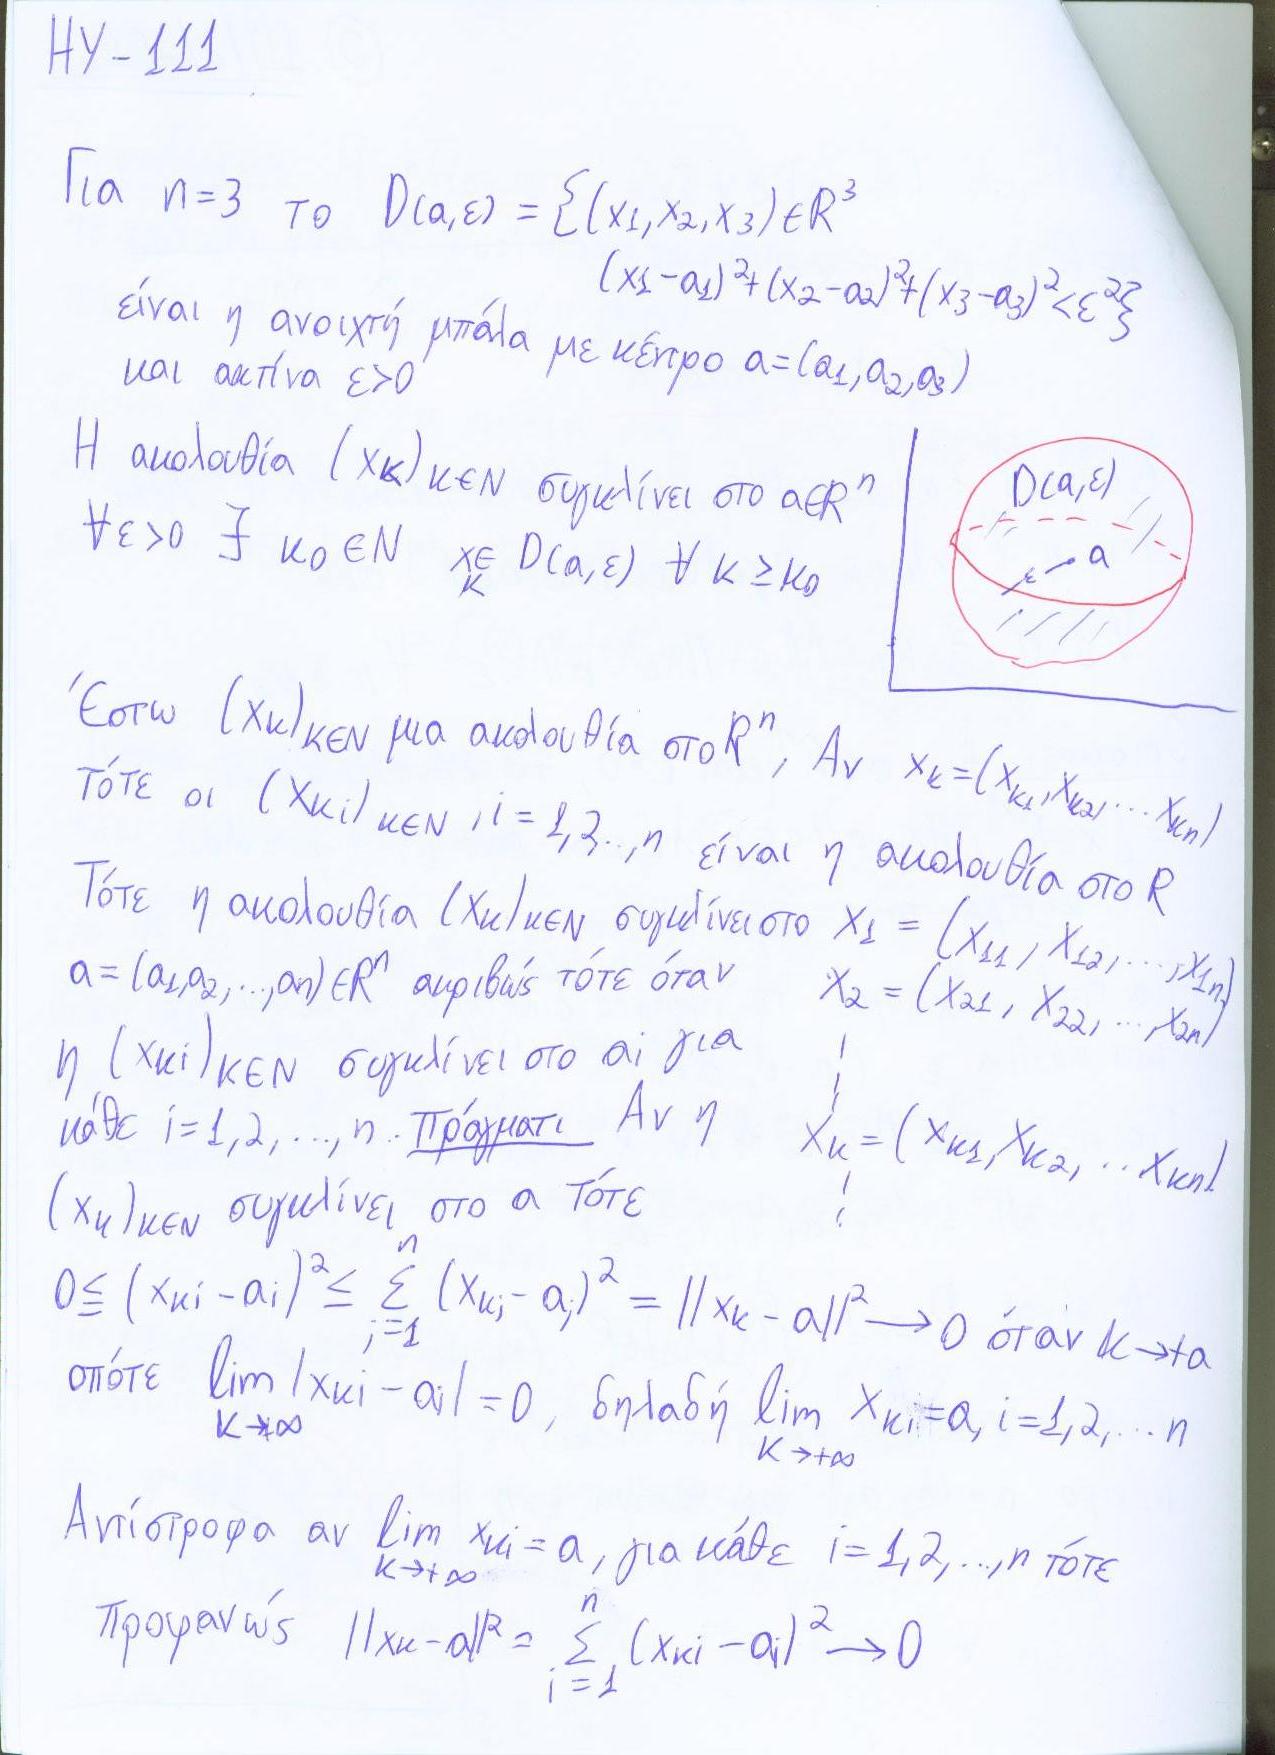 ΗΥ-111
Για n=3 το D(a,ε) = {(x₁,x₂,x₃)∈R³
(x₁-a₁)²+(x₂-a₂)²+(x₃-a₃)²<ε²}
είναι η ανοιχτή μπάλα με κέντρο a=(a₁,a₂,a₃)
και ακτίνα ε>0
Η ακολουθία (xₖ)ₖ∈N συγκλίνει στο a∈Rⁿ
∀ε>0 ∃ κ₀∈N xₖ∈ D(a,ε) ∀ κ≥κ₀
D(a,ε)
ε a
Έστω (xₖ)ₖ∈N μια ακολουθία στο Rⁿ, Αν xₖ=(xₖ₁,xₖ₂,...xₖₙ)
Τότε οι (xₖᵢ)ₖ∈N, i=1,2,..,n είναι η ακολουθία στο R
Τότε η ακολουθία (xₖ)ₖ∈N συγκλίνει στο
a=(a₁,a₂,...,aₙ)∈Rⁿ ακριβώς τότε όταν
η (xₖᵢ)ₖ∈N συγκλίνει στο aᵢ για
κάθε i=1,2,...,n. Πράγματι Αν η
(xₖ)ₖ∈N συγκλίνει στο a τότε
x₁ = (x₁₁, x₁₂,...,x₁ₙ)
x₂ = (x₂₁, x₂₂,...,x₂ₙ)
xₖ = (xₖ₁,xₖ₂,..xₖₙ)
0≤(xₖᵢ-aᵢ)²≤ Σⱼ₌₁ⁿ (xₖⱼ-aⱼ)² = ||xₖ-a||² → 0 όταν κ→+a
οπότε lim κ→+∞ |xₖᵢ-aᵢ|=0, δηλαδή lim κ→+∞ xₖᵢ=a, i=1,2,...n
Αντίστροφα αν lim κ→+∞ xₖᵢ=a, για κάθε i=1,2,...,n τότε
προφανώς ||xₖ-a||²= Σᵢ₌₁ⁿ (xₖᵢ-aᵢ)² → 0